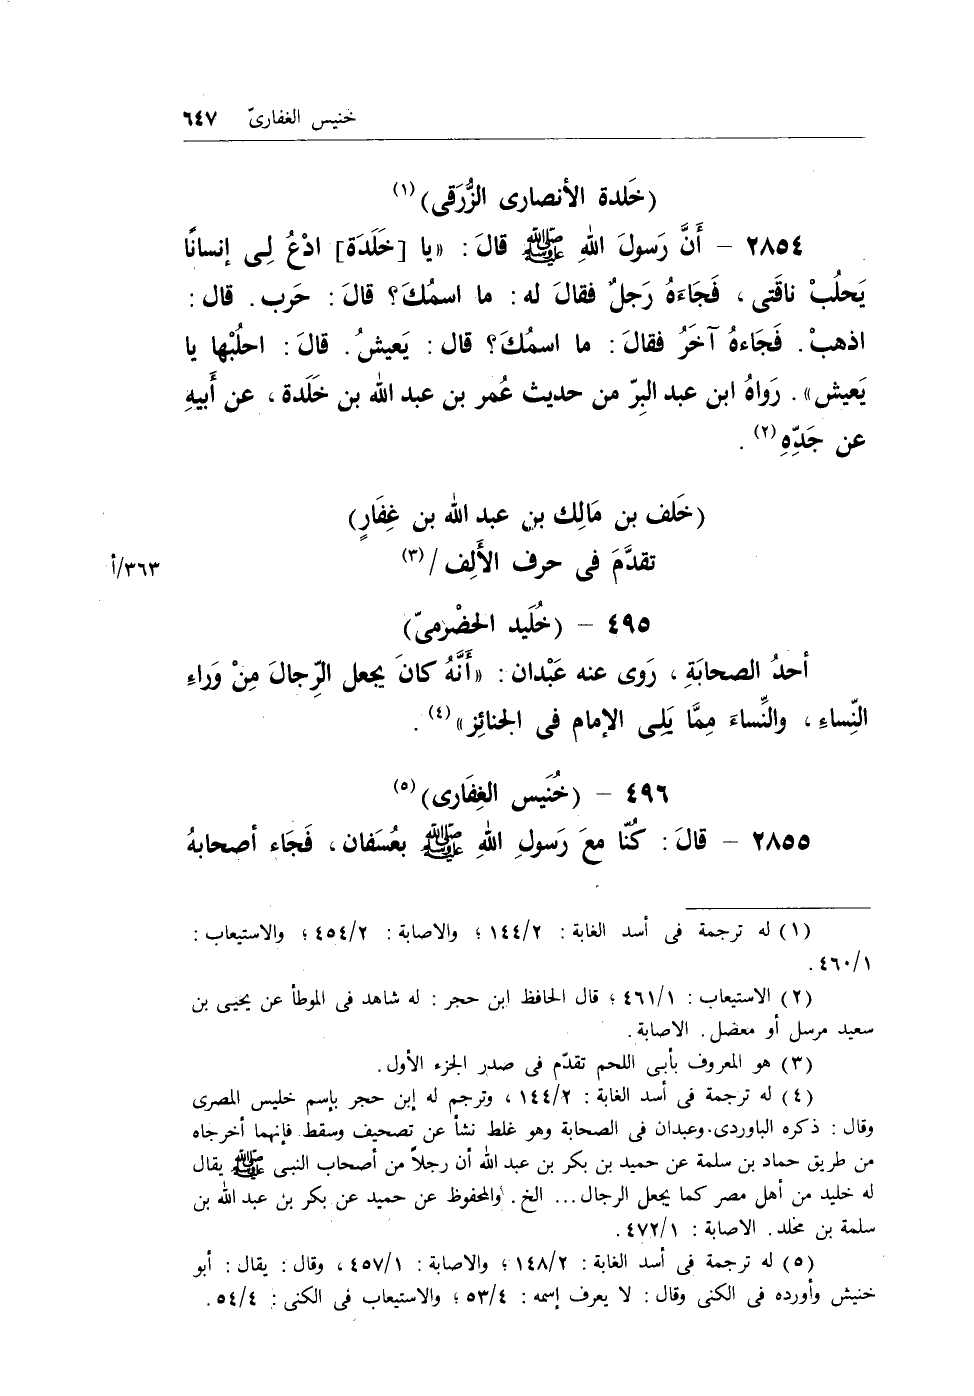 خنيس الغفارىّ ٦٤٧
(خَلدة الأنصارى الزُّرَقى)(١)
٢٨٥٤ – أَنَّ رَسولَ اللهِ ﷺ قالَ : «يا [خَلَدَة] ادْعُ لِى إنسانًا
يَحلُبْ ناقَتى ، فَجَاءَهُ رَجلٌ فقالَ له : ما اسمُكَ؟ قالَ : حَرب . قال :
اذهبْ . فَجَاءهُ آخَرُ فقالَ : ما اسمُكَ؟ قال : يَعيشُ . قالَ : احلُبْها يا
يَعيش» . رَواهُ ابن عبد البِرّ من حديث عُمر بن عبد الله بن خَلَدة ، عن أَبيهِ
عن جَدِّهِ(٢) .
(خَلف بن مَالِك بن عبد الله بن غِفَارٍ)
تقدَّمَ فى حرف الأَلِف /(٣)
٣٦٣/أ
٤٩٥ – (خُلَيد الحضْرمىّ)
أحدُ الصحابَةِ ، رَوى عنه عَبْدان : «أَنَّهُ كانَ يجعل الرِّجالَ مِنْ وَراءِ
النِّساءِ ، والنِّساءَ مِمَّا يَلِى الإمام فى الجنائِز»(٤) .
٤٩٦ – (خُنَيس الغِفَارى)(٥)
٢٨٥٥ – قالَ : كُنّا معَ رَسولِ اللهِ ﷺ بعُسَفان ، فَجَاء أصحابهُ
(١) له ترجمة فى أسد الغابة : ١٤٤/٢ ؛ والاصابة : ٤٥٤/٢ ؛ والاستيعاب :
٤٦٠/١ .
(٢) الاستيعاب : ٤٦١/١ ؛ قال الحافظ ابن حجر : له شاهد فى الموطأ عن يحيى بن
سعيد مرسل أو معضل . الاصابة .
(٣) هو المعروف بأبى اللحم تقدّم فى صدر الجزء الأول .
(٤) له ترجمة فى أسد الغابة : ١٤٤/٢ ، وترجم له إبن حجر بإسم خليس المصرى
وقال : ذكره الباوردى وعبدان فى الصحابة وهو غلط نشأ عن تصحيف وسقط فإنهما أخرجاه
من طريق حماد بن سلمة عن حميد بن بكر بن عبد الله أن رجلاً من أصحاب النبى ﷺ يقال
له خليد من أهل مصر كما يجعل الرجال ... الخ . والمحفوظ عن حميد عن بكر بن عبد الله بن
سلمة بن مخلد . الاصابة : ٤٧٢/١ .
(٥) له ترجمة فى أسد الغابة : ١٤٨/٢ ؛ والاصابة : ٤٥٧/١ ، وقال : يقال : أبو
خنيش وأورده فى الكنى وقال : لا يعرف إسمه : ٥٣/٤ ؛ والاستيعاب فى الكنى : ٥٤/٤ .